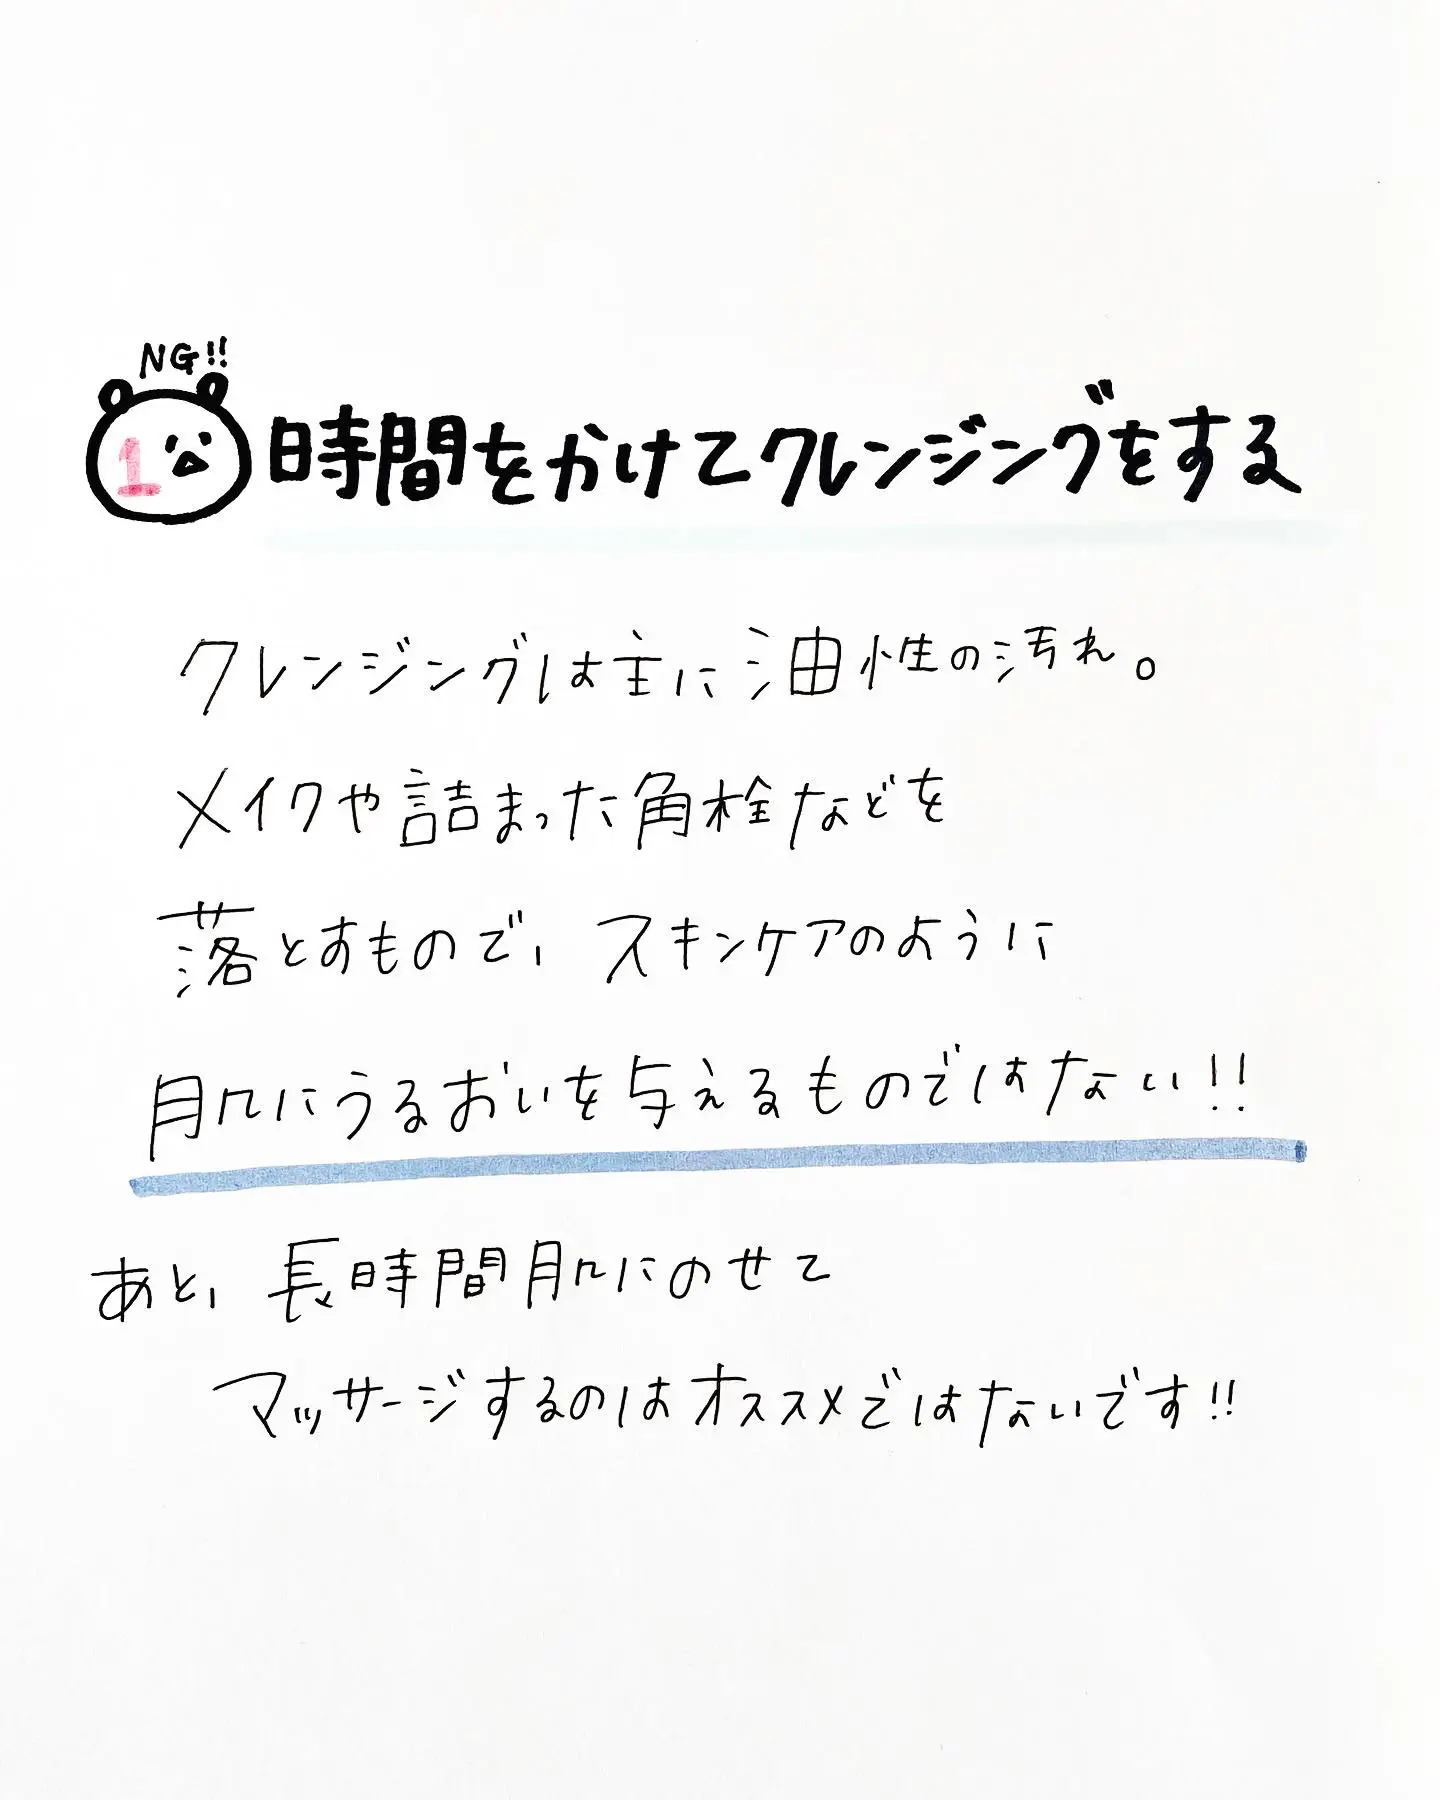 NG!!
1 時間をかけてクレンジングをする
クレンジングは主に油性の汚れ。
メイクや詰まった角栓などを
落とすもので、スキンケアのように
肌にうるおいを与えるものではない!!
あと、長時間肌にのせて
マッサージするのはオススメではないです!!